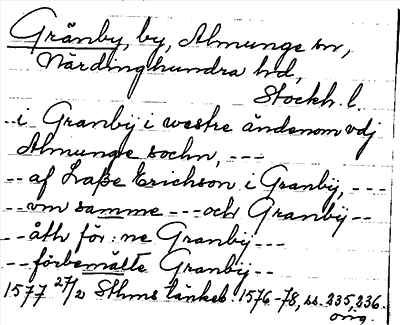 Gränby, by, Almunge sn,
Närdinghundra hd,
Stockh. l.
--i Granby i westre ändenom vdj
Almunge sochn, ---
-- af Laße Erichson i Granbij, ---
-- vm samme --- och Granbij --
-- åth för:ne Granbij ---
-- förbemälte Granbij --
1577 27/2 Sthms tänkeb. 1576-78, ss. 235, 236.
orig.